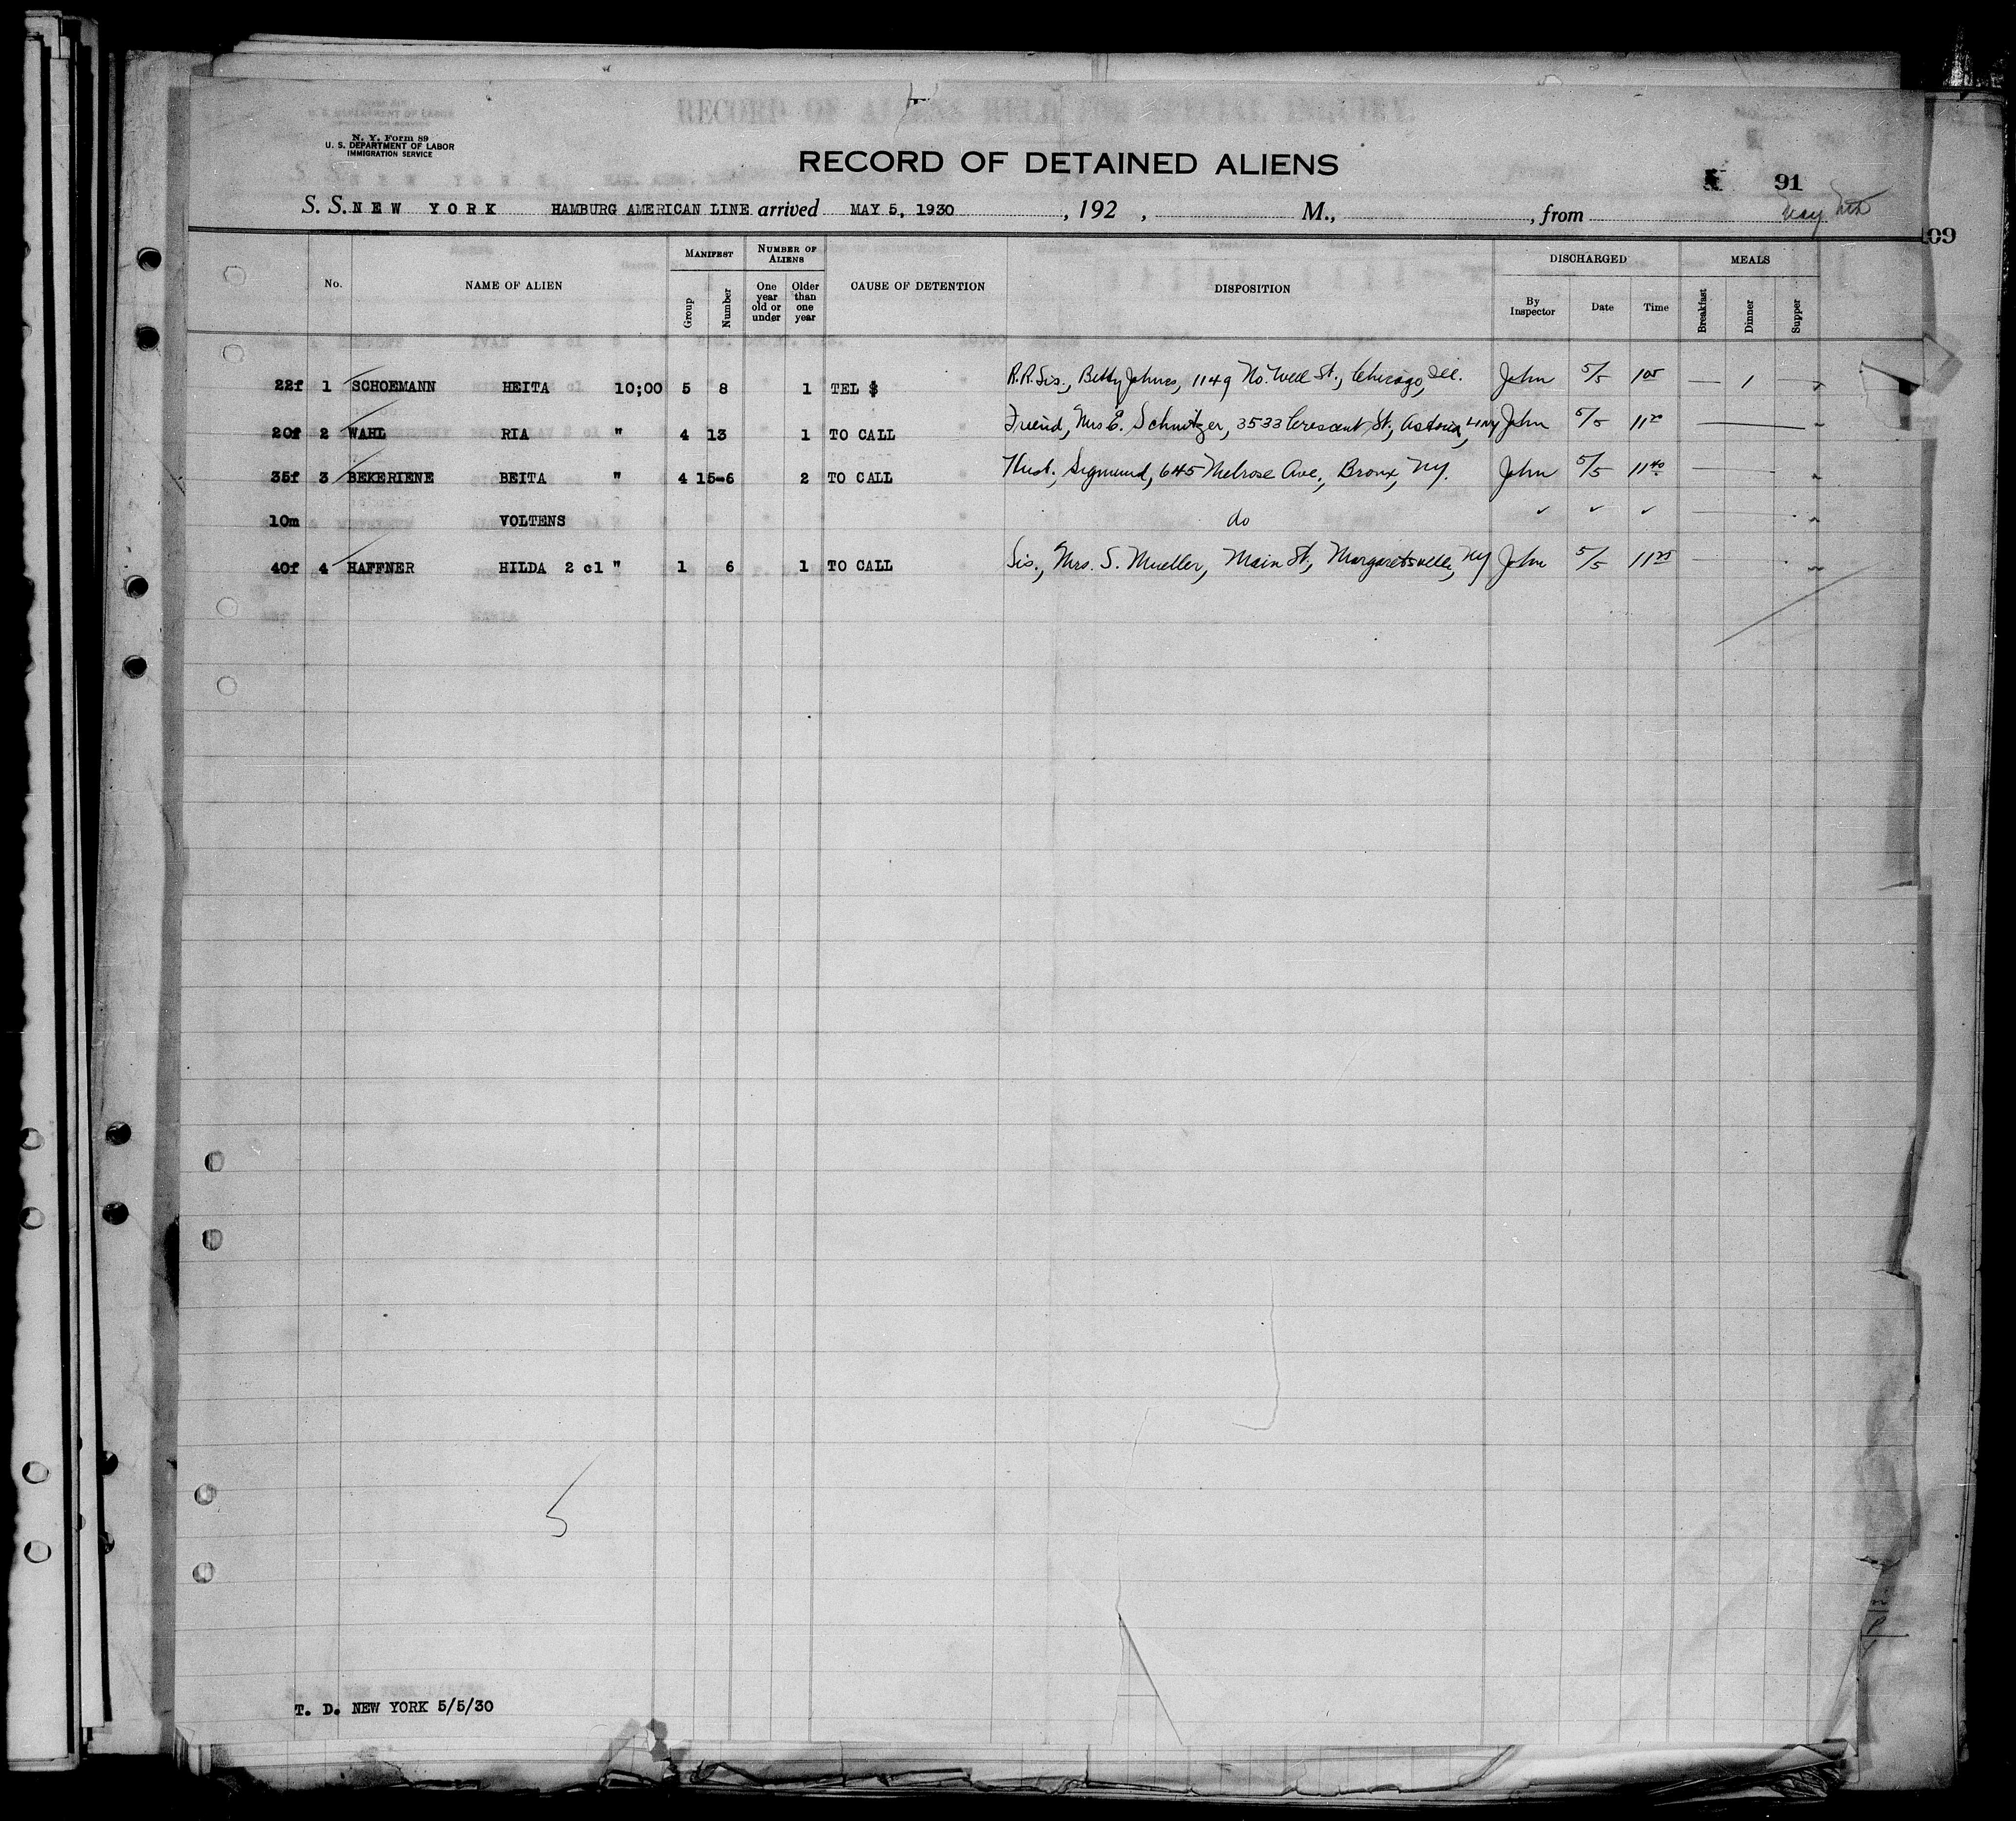 N. Y. Form 89
U. S. DEPARTMENT OF LABOR
IMMIGRATION SERVICE
RECORD OF ALIENS HELD FOR SPECIAL INQUIRY.
RECORD OF DETAINED ALIENS
91
S. S. NEW YORK HAMBURG AMERICAN LINE arrived MAY 5, 1930 , 192 , M., , from
109
No. NAME OF ALIEN MANIFEST Group Number NUMBER OF ALIENS One year old or under Older than one year CAUSE OF DETENTION DISPOSITION DISCHARGED By Inspector Date Time MEALS Breakfast Dinner Supper
22f 1 SCHOEMANN HEITA 10;00 5 8 1 TEL $ R.R. Sis., Betty Johnes, 1149 No. Well St., Chicago, Ill. John 5/5 1 05 — 1 —
20f 2 WAHL RIA " 4 13 1 TO CALL Friend, Mrs E. Schnitzer, 3533 Crescent St., Astoria, LINY John 5/5 11 20
35f 3 BEKERIENE BEITA " 4 15-6 2 TO CALL Husb., Sigmund, 645 Melrose Ave., Bronx, NY. John 5/5 11 40
10m VOLTENS do ✓ ✓ ✓
40f 4 HAFFNER HILDA 2 cl " 1 6 1 TO CALL Sis., Mrs. S. Mueller, Main St, Margaretsville, NY John 5/5 11 25
5
T. D. NEW YORK 5/5/30